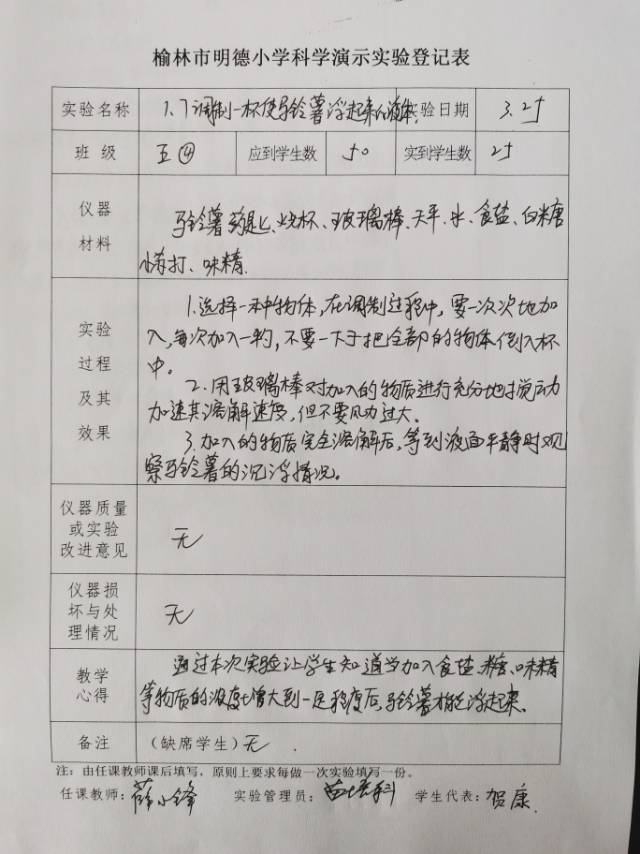 榆林市明德小学科学演示实验登记表
实验名称 1.7调制一杯使马铃薯浮起来的液体 实验日期 3.25
班 级 五④ 应到学生数 50 实到学生数 25
仪器
材料
马铃薯、药匙、烧杯、玻璃棒、天平、水、食盐、白糖
小苏打、味精
实验
过程
及其
效果
1.选择一种物体,在调制过程中,要一次次地加
入,每次加入一药,不要一下子把全部的物体倒入杯
中。
2.用玻璃棒对加入的物质进行充分地搅动
加速其溶解速度,但不要用力过大。
3.加入的物质完全溶解后,等到液面平静时观
察马铃薯的沉浮情况。
仪器质量
或实验
改进意见
无
仪器损
坏与处
理情况
无
教学
心得
通过本次实验让学生知道当加入食盐、糖、味精
等物质的浓度增大到一定程度后,马铃薯都能浮起来。
备注 (缺席学生)无.
注:由任课教师课后填写,原则上要求每做一次实验填写一份。
任课教师:薛小锋 实验管理员:苗培科 学生代表:贺康.